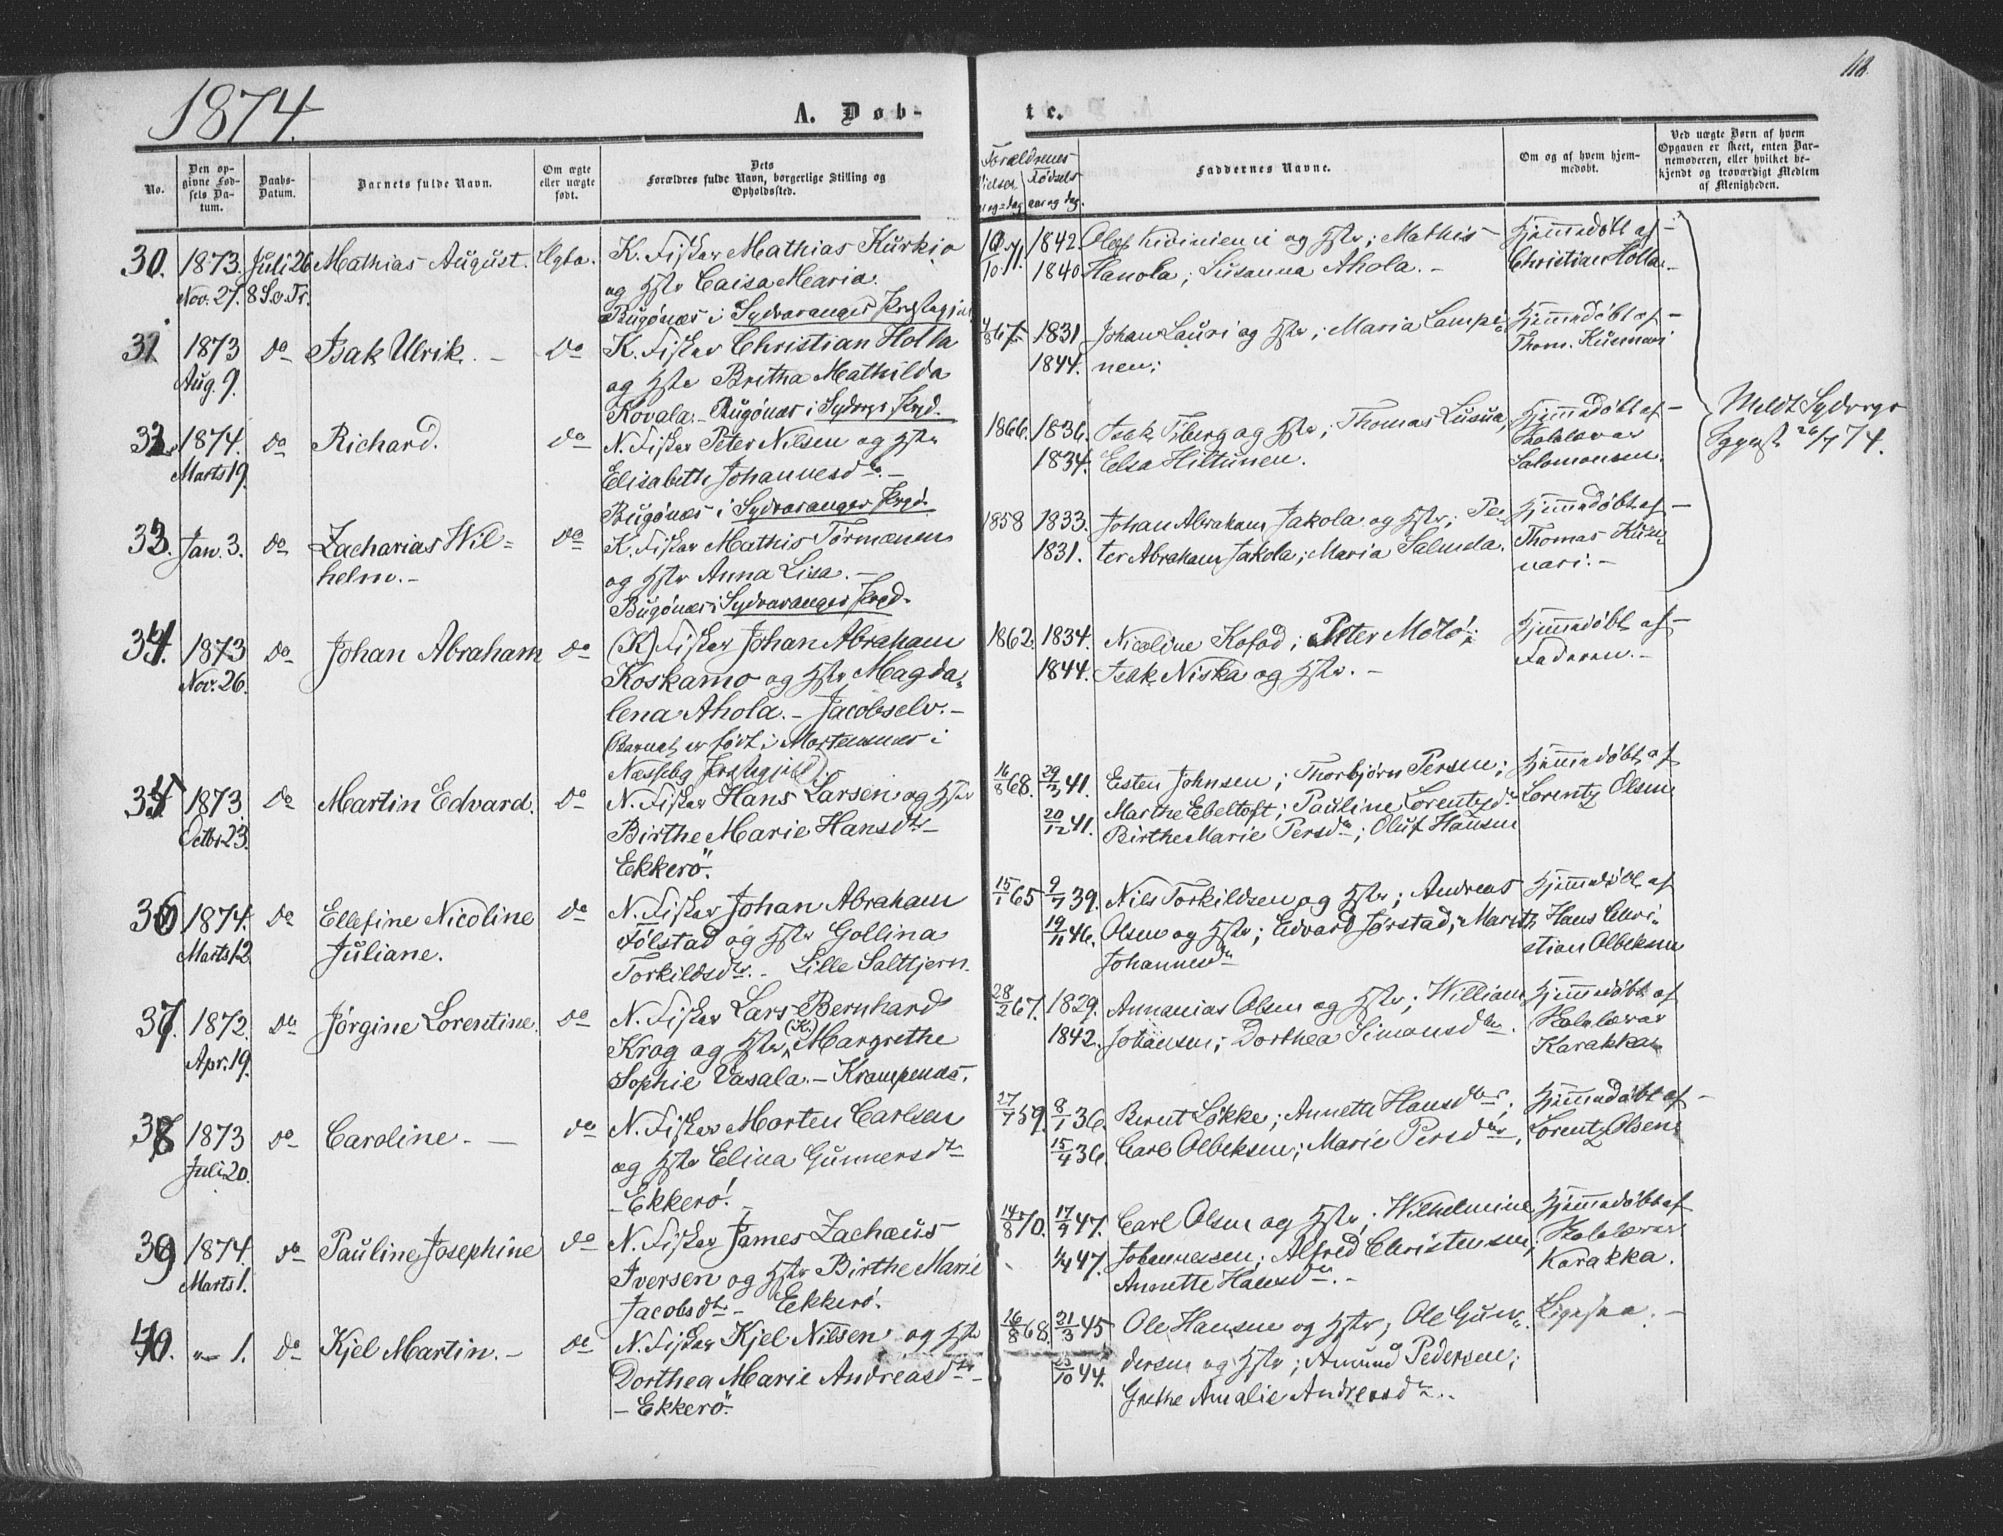 118.
1874.
A. Døb-
te.
No.
Den op-
givne Fød-
sels Da-
tum.
Daabs-
Datum.
Barnets fulde Navn.
Om ægte
eller uægte
født.
Dets
Forældres fulde Navn, borgerlige Stilling og
Opholdssted.
Forældrenes
Vielses
Fødsels
aar og dag
aar og dag.
Faddernes Navne.
Om og af hvem hjem-
medøbt.
Ved uægte Børn af hvem
Opgaven er skeet, enten Bar-
nemoderen, eller hvilket be-
kjendt og troværdigt Medlem
af Menigheden.
30. 1873. Juli 26 Mathias August. Ægte. K. Fisker Mathias Kurkio
Nov. 27. 8 S. e. Tr. og Hstr Caisa Maria.
Bugönæs i Sydvaranger Præstegjeld
1842. Olaf Kiviniemi og Hstr; Mathis
1840 Hanola; Susanna Ahola. -
Hjemmedöbt af
Christian Holla
31 1873 do Isak Ulrik. - do K. Fisker Christian Holla
Aug. 9. og Hstr Britha Mathilda
Kovala. - Bugönæs i Sydvgs Prgd.
4/8 67. 1831 Johan Lauri og Hstr; Maria Lampi-
1844. nen;
Hjemmedöbt af
Thom. Kusnari
32. 1874. do Richard. do N. Fisker Peter Nilsen og Hstr
Marts 19. Elisabeth Johannesdtr. -
Bugönæs i Sydvaranger Prgd.
1866. 1836. Isak Fiberg og Hstr; Thomas Lusua,
1834. Elsa Hiltunen.
Hjemmedöbt af
Skolelærer
Salomonsen.
33. Jan. 3. do Zacharias Wil- do K. Fisker Mathis Törmænen
helm. - og Hstr Anna Lisa. -
Bugönæs i Sydvaranger Prgd.
1858 1833. Johan Abraham Jakola og Hstr; Pe-
1831. ter Abraham Jakola; Maria Salmela.
Hjemmedöbt af
Thomas Kus-
nari. -
Meldt Sydvrgr
Sggepst 26/7 74.
34. 1873 do Johan Abraham do (K) Fisker Johan Abraham
Nov. 26. Koskamo og Hstr Magda-
lena Ahola. - Jacobselv. -
(Barnet er født i Mortensnæs i
Næsseby Præstegjeld).
1862. 1834. Nicoline Kofod; Peter Mötö;
1844. Isak Niska og Hstr. -
Hjemmedöbt af
Faderen. -
35 1873 do Martin Edvard. do N. Fisker Hans Larsen og Hstr
Octbr. 23. Birthe Marie Hansdtr -
Ekkerö.
16/8 68. 29/3 41. Esten Johnsen; Thorbjörn Persen;
20/12 41. Marthe Ebeltoft; Pauline Lorentzdr
Birthe Marie Persdr; Oluf Hansen
Hjemmedöbt af
Lorentz Olsen
36 1874. do Ellefine Nicoline do N. Fisker Johan Abraham
Marts 12 Juliane. Fölstad og Hstr Gollina
Torkildsdtr. - Lille Saltjern.
15/1 65 9/7 39. Nils Torkildsen og Hstr; Andreas
19/11 46. Olsen og Hstr; Edvard Jörstad; Mareth
Johannesdr
Hjemmedöbt af
Hans Chri-
stian Olbeksen
37. 1872. do Jørgine Lorentine. do N. Fisker Lars Bernhard
Apr. 19. Krog og Hstr (K.) Margrethe
Sophie Vasala. - Krampenæs.
28/2 67. 1829. Annanias Olsen og Hstr; William
1842. Johansen; Dorthea Simonsdtr.
Hjemmedöbt af
Skolelærer
Karakka
38 1873 do Caroline. - do N. Fisker Morten Carlsen
Juli 20. og Hstr Elina Gunnersdtr
- Ekkerö. -
27/7 59. 8/1 36. Bernt Løkke; Annette Hansdtr;
15/4 36. Carl Olbeksen; Marie Persdtr.
Hjemmedöbt af -
Lorentz Olsen
39 1874. do Pauline Josephine do N. Fisker James Zachæus
Marts 1. Iversen og Hstr Birthe Marie
Jacobsdtr - Ekkerö.
14/8 70. 17/9 47. Carl Olsen og Hstr; Wilhelmine
47. Johannessen; Alfred Christensen;
Annette Hansdtr. -
Hjemmedöbt af
Skolelærer
Karakka.
40. " 1. do Kjel Martin. - do N. Fisker Kjel Nilsen og Hstr
Dorthea Marie Andreasdtr -
- Ekkerö.
16/8 68. 21/3 45 Ole Hansen og Hstr; Ole Gun-
23/10 44. dersen og Hstr; Amund Pedersen;
Grethe Amalie Andreasdr.
Ligesaa. -